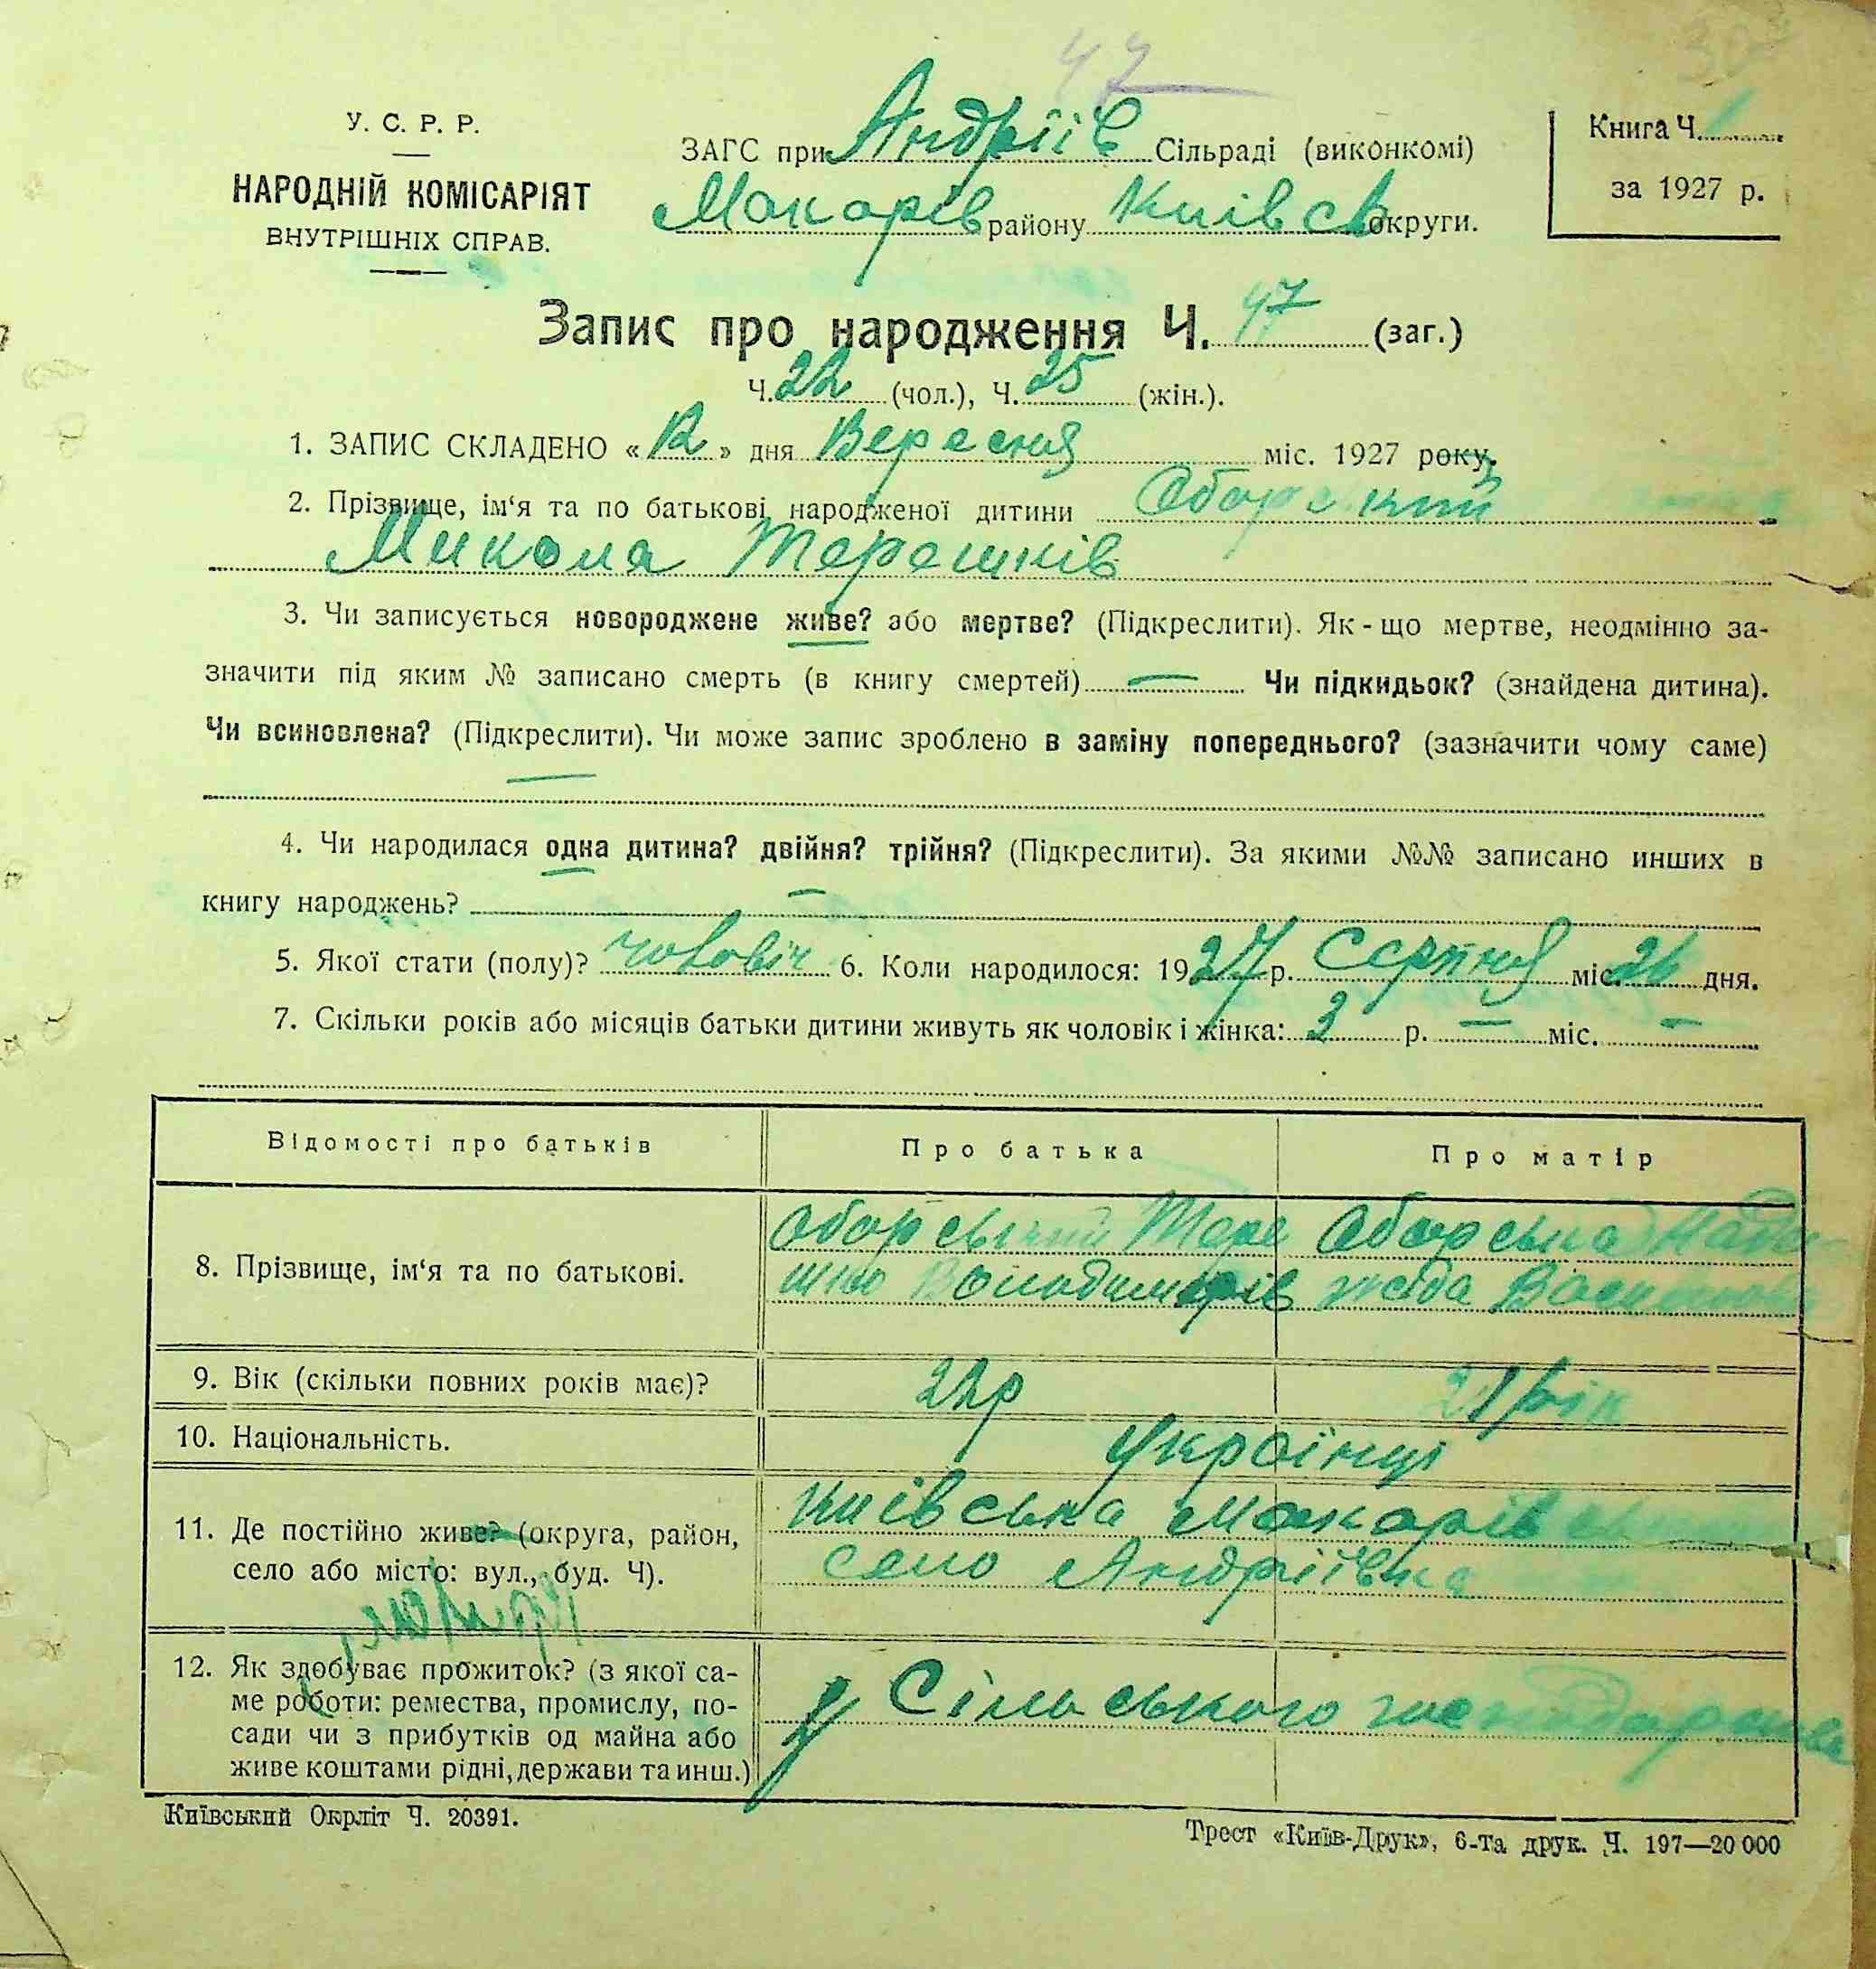 47
У. С. Р. Р.
НАРОДНІЙ КОМІСАРІЯТ
ВНУТРІШНІХ СПРАВ.
ЗАГС при Андріїв Сільраді (виконкомі)
Макарів району Київськ округи.
Книга Ч. 1
за 1927 р.
Запис про народження Ч. 47 (заг.)
Ч. 22 (чол.), Ч. 25 (жін.).
1. ЗАПИС СКЛАДЕНО «12» дня Вересня міс. 1927 року.
2. Прізвище, ім'я та по батькові народженої дитини Оборский
Микола Терешків
3. Чи записується новороджене живе? або мертве? (Підкреслити). Як-що мертве, неодмінно за-
значити під яким № записано смерть (в книгу смертей) — Чи підкидьок? (знайдена дитина).
Чи всиновлена? (Підкреслити). Чи може запис зроблено в заміну попереднього? (зазначити чому саме)
—
4. Чи народилася одна дитина? двійня? трійня? (Підкреслити). За якими №№ записано инших в
книгу народжень? —
5. Якої стати (полу)? чоловіч 6. Коли народилося: 1927 р. Серпня міс. 26 дня.
7. Скільки років або місяців батьки дитини живуть як чоловік і жінка: 2 р. — міс. —
Відомості про батьків Про батька Про матір
8. Прізвище, ім'я та по батькові.
Оборський Тере
шко Володимирів
Оборська Наді
жда
9. Вік (скільки повних років має)? 22р 21 рік
10. Національність. Українці
11. Де постійно живе? (округа, район,
село або місто: вул., буд. Ч).
Київська Макарів
село Андріївка
12. Як здобуває прожиток? (з якої са-
ме роботи: ремества, промислу, по-
сади чи з прибутків од майна або
живе коштами рідні, держави та инш.)
У Сільського господарства
Київський Окрліт Ч. 20391.
Трест «Київ-Друк», 6-та друк. Ч. 197—20 000